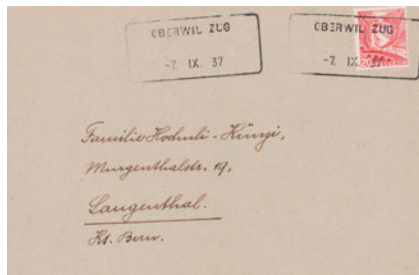 OBERWIL ZUG
-7. IX. 37
OBERWIL ZUG
-7. IX. 37
20
Familie Hodmli-Künzi,
Murgenthalstr. 19,
Langenthal.
Kt. Bern.